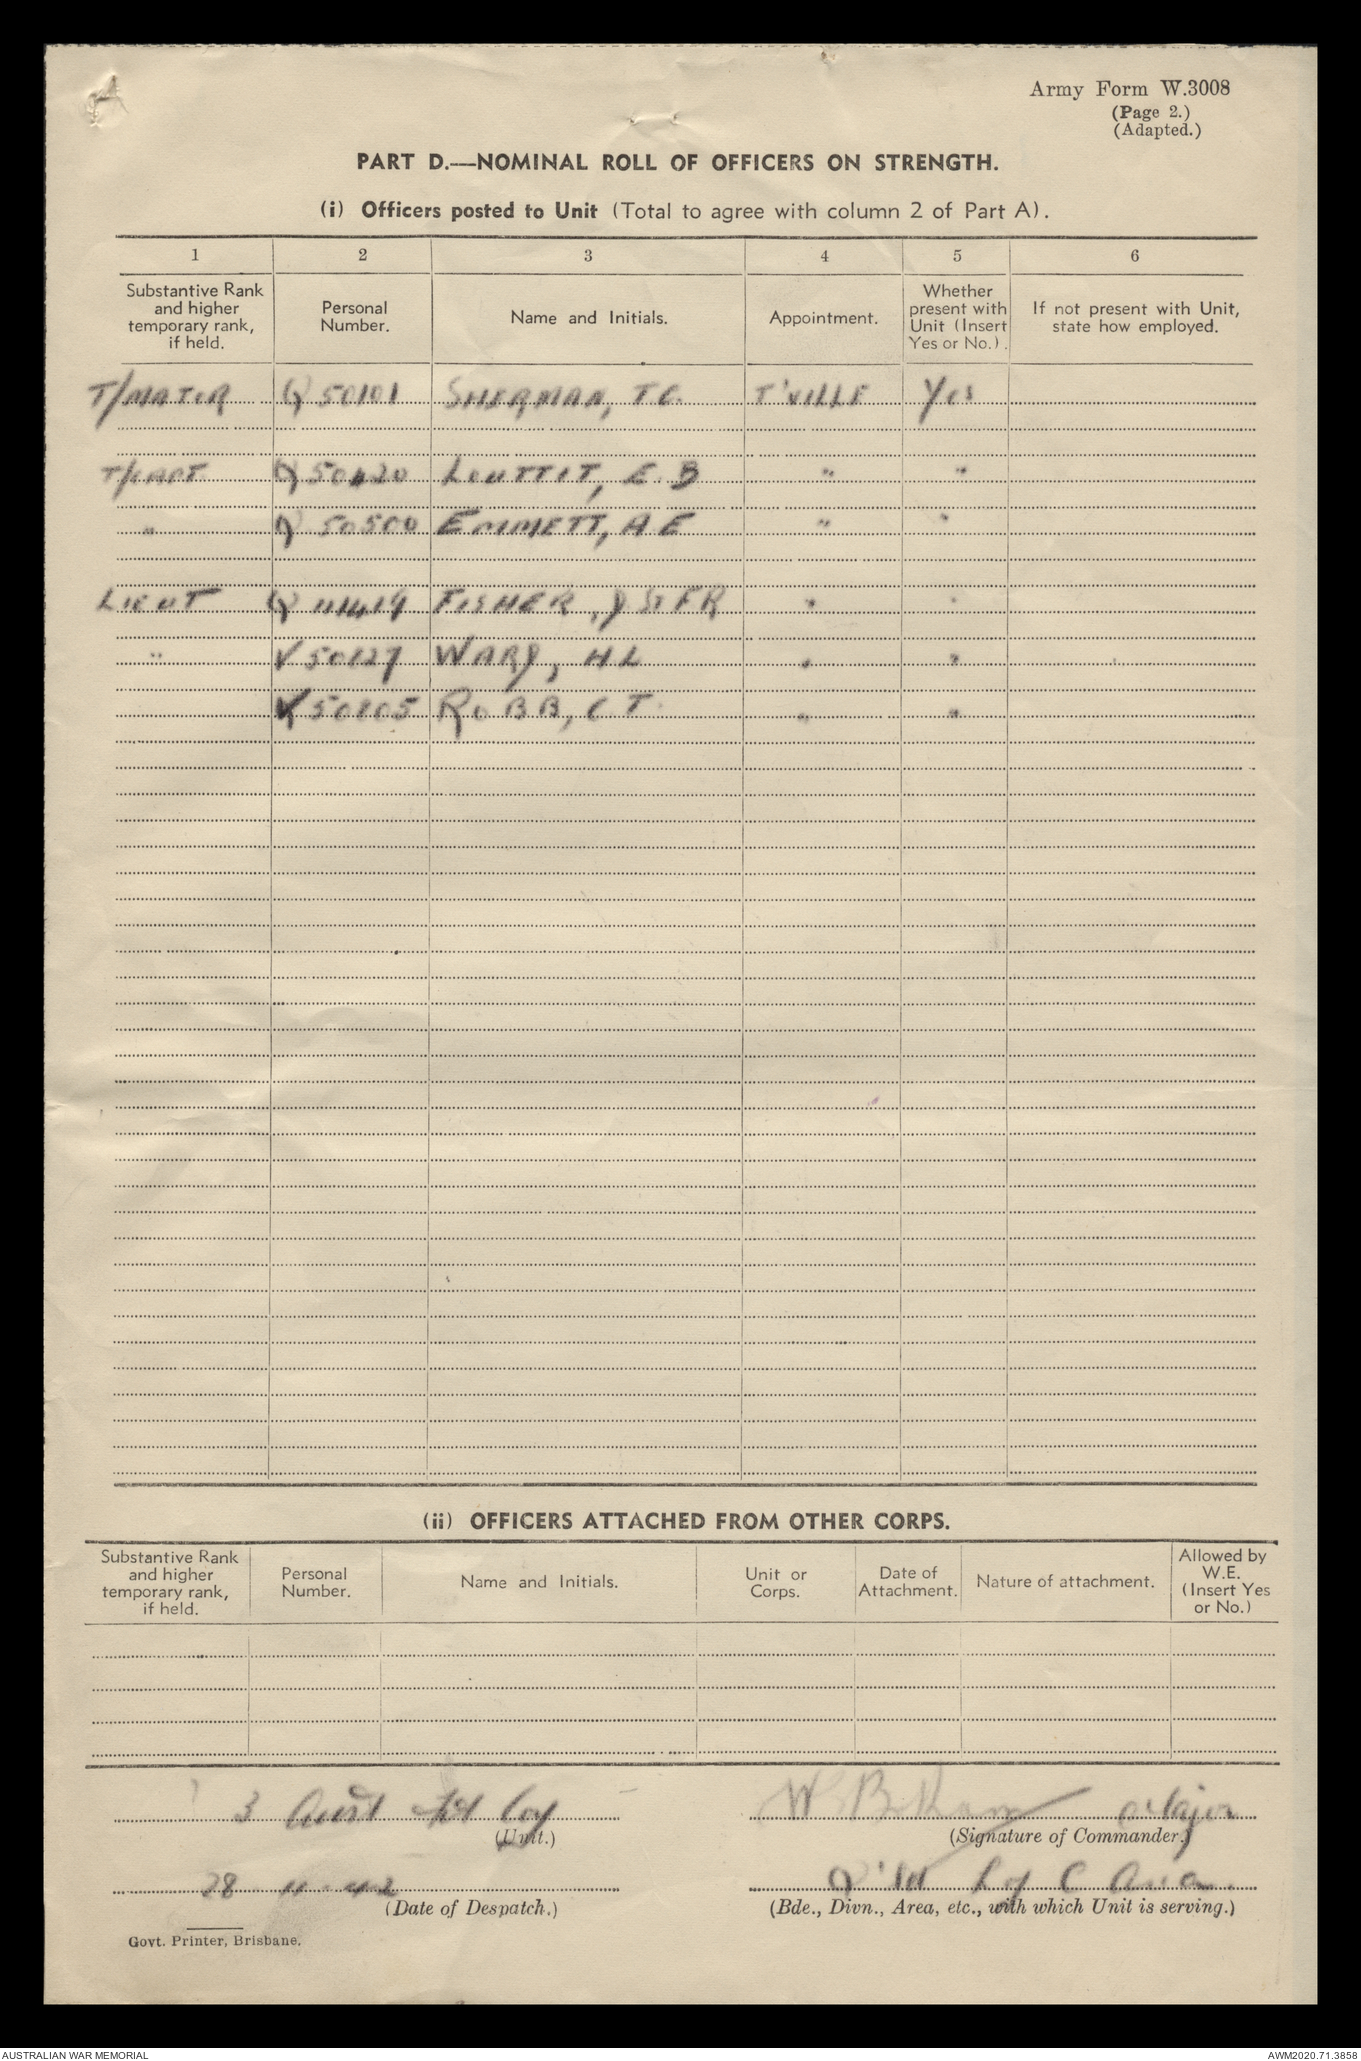 Army Form W.3008
(Page 2.)
(Adapted.)
PART D.—NOMINAL ROLL OF OFFICERS ON STRENGTH.
(i) Officers posted to Unit (Total to agree with column 2 of Part A).
1 2 3 4 5 6
Substantive Rank and higher temporary rank, if held. Personal Number. Name and Initials. Appointment. Whether present with Unit (Insert Yes or No.). If not present with Unit, state how employed.
T/MAJOR Q 50101 SHERMAN, T.C. T'VILLE Yes
T/CAPT. Q 50420 LOUTTIT, E.B " "
" Q 50500 EMMETT, A E " "
LIEUT Q FISHER, J St FR " "
" 50127 WARD, H L " "
50805 ROBB, C T. " "
(ii) OFFICERS ATTACHED FROM OTHER CORPS.
Substantive Rank and higher temporary rank, if held. Personal Number. Name and Initials. Unit or Corps. Date of Attachment. Nature of attachment. Allowed by W.E. (Insert Yes or No.)
3 Aust Coy Major
(Unit.) (Signature of Commander.)
28 11-42 Q'ld L of C Area.
(Date of Despatch.) (Bde., Divn., Area, etc., with which Unit is serving.)
Govt. Printer, Brisbane.
AUSTRALIAN WAR MEMORIAL AWM2020.71.3858